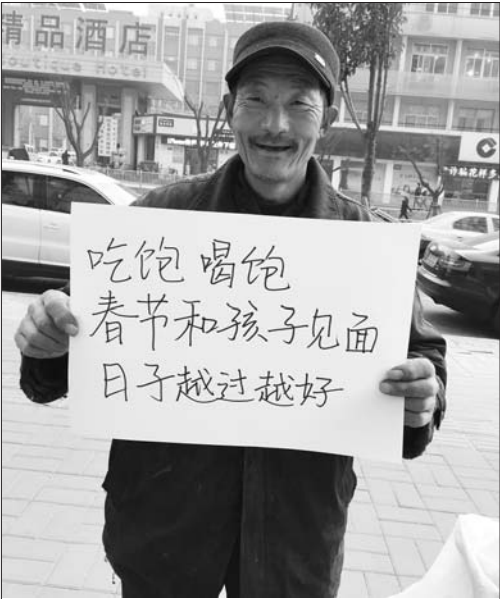 精品酒店
boutique hotel
诈骗花样多
吃饱 喝饱
春节和孩子见面
日子越过越好